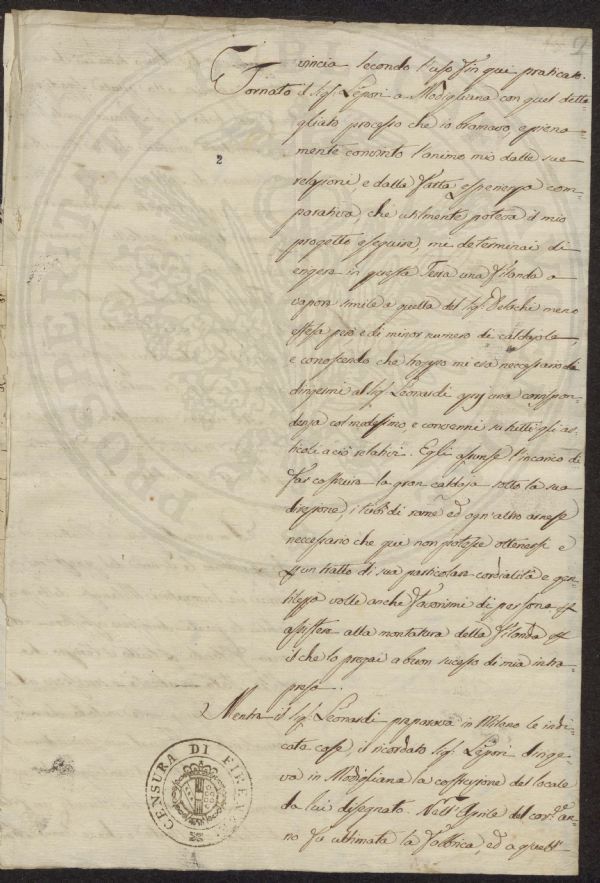 9
vincia secondo l'uso fin qui praticato.
Tornato il Sig.r Lepori a Modigliana con quel detta
gliato processo che io bramavo, e piena
mente convinto l'animo mio dalle sue
2
relazioni, e dalla fatta esperienza com
parativa, che utilmente poteva il mio
progetto eseguirsi, mi determinai di
erigere in questa Terra una Filanda a
vapore simile a quella del Sig.r Delachi meno
estesa però e di minor numero di caldajole,
e conoscendo che troppo mi era neccessario di
dirigermi al Sig.r Leonardi aprj una corrispon=
denza col medesimo e convenni su tutti gli ar
ticoli a ciò relativi. Egli assunse l'incarico di
far costruire la gran caldaja sotto la sua
direzione, i tubi di rame ed ogn'altro arnese
neccessario che qui non potesse ottenersi e
p un tratto di sua particolare cordialità e gen
tilezza volle anche favorirmi di persona p
assistere alla montatura della Filanda p
il che lo pregai a buon sucesso di mia intra
presa.
Mentre il Sig.r Leonardi preparava in Milano le indi
cate cose, il ricordato Sig.r Lepori dirige
va in Modigliana la costruzione del locale
da lui disegnato. Nell'Aprile del corr.e an
no fu ultimata la fabbrica, ed a quell'
CENSURA DI FIRENZE